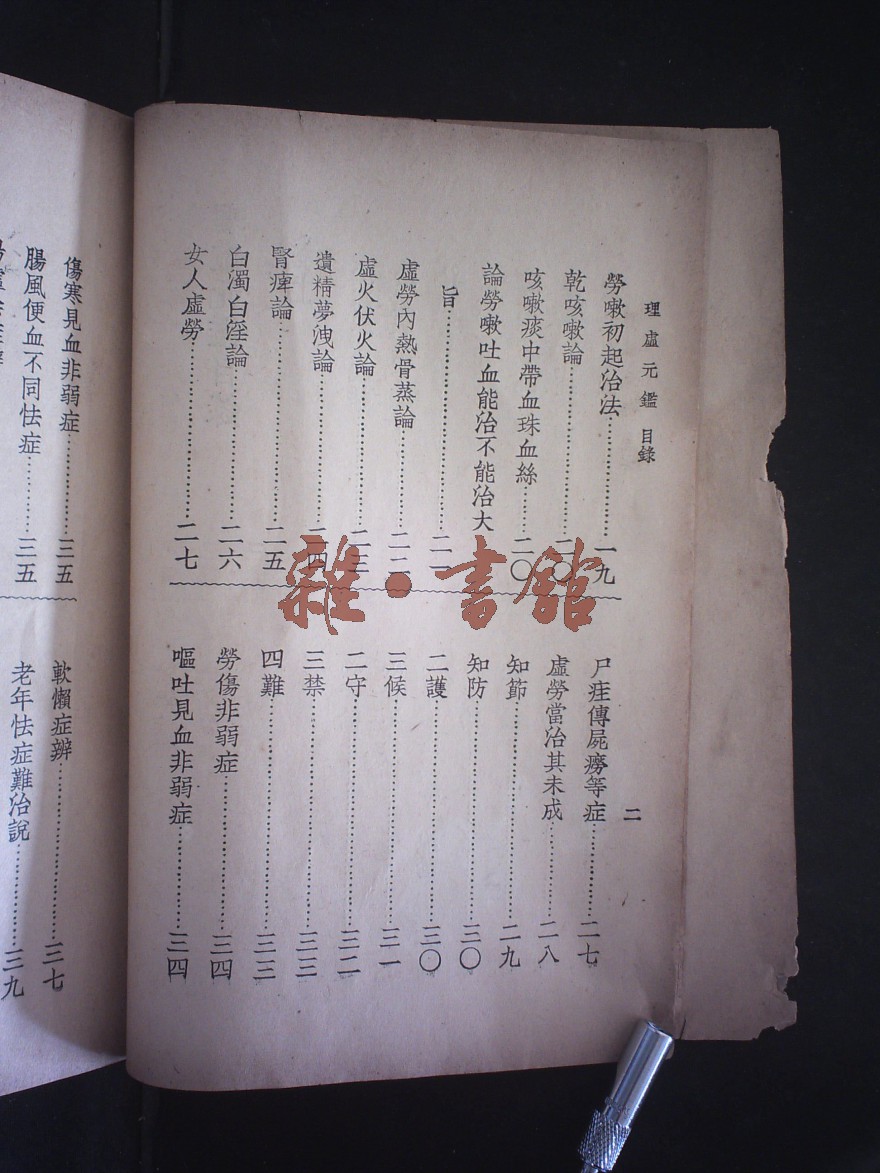 理虛元鑑 目錄
二
勞嗽初起治法…………一九
乾咳嗽論…………二〇
咳嗽痰中帶血珠血絲…………二〇
論勞嗽吐血能治不能治大
旨…………二一
虛勞內熱骨蒸論…………二二
虛火伏火論…………二三
遺精夢洩論…………二四
腎痺論…………二五
白濁白淫論…………二六
女人虛勞…………二七
尸疰傳屍癆等症…………二七
虛勞當治其未成…………二八
知節…………二九
知防…………三〇
二護…………三〇
三候…………三一
二守…………三二
三禁…………三三
四難…………三三
勞傷非弱症…………三四
嘔吐見血非弱症…………三四
傷寒見血非弱症…………三五
腸風便血不同怯症…………三五
軟懶症辨…………三七
老年怯症難治說…………三九
雜·書館